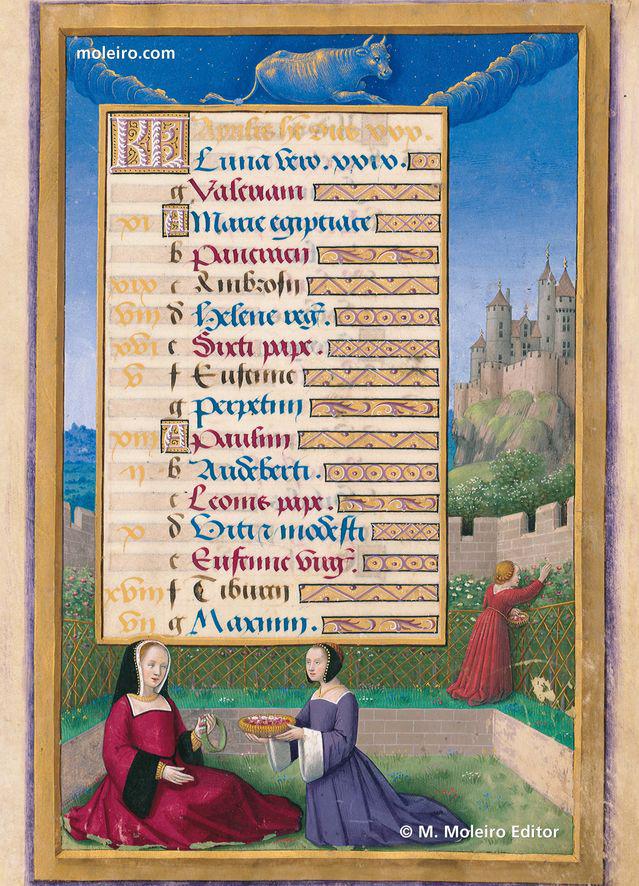 moleiro.com
KL Aprilis hẽ dies xxx.
Luna vero. xxix.
g Valeriani
xi A Marie egiptiace
b Pancracii
xix c Ambrosii
viii d Helene reg̃.
xvi e Sixti pape.
v f Eufemie
g Perpetuii
xiii A Paulini
ii b Audeberti.
c Leonis pape.
x d Viti ⁊ modesti
e Eufemie virg̃.
xviii f Tiburcii
vii g Maximi.
© M. Moleiro Editor